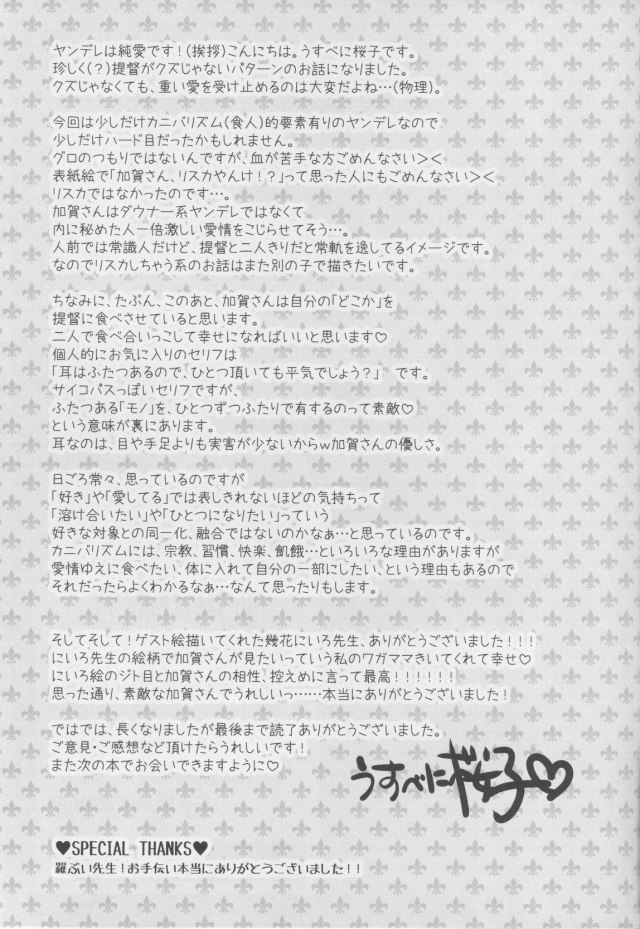 ヤンデレは純愛です！(挨拶)こんにちは。うすべに桜子です。
珍しく(？)提督がクズじゃないパターンのお話になりました。
クズじゃなくても、重い愛を受け止めるのは大変だよね…(物理)。
今回は少しだけカニバリズム(食人)的要素有りのヤンデレなので
少しだけハード目だったかもしれません。
グロのつもりではないんですが、血が苦手な方ごめんなさい＞＜
表紙絵で「加賀さん、リスカやんけ！？」って思った人にもごめんなさい＞＜
リスカではなかったのです…。
加賀さんはダウナー系ヤンデレではなくて
内に秘めた人一倍激しい愛情をこじらせてそう…。
人前では常識人だけど、提督と二人きりだと常軌を逸してるイメージです。
なのでリスカしちゃう系のお話はまた別の子で描きたいです。
ちなみに、たぶん、このあと、加賀さんは自分の「どこか」を
提督に食べさせていると思います。
二人で食べ合いっこして幸せになればいいと思います♡
個人的にお気に入りのセリフは
「耳はふたつあるので、ひとつ頂いても平気でしょう？」 です。
サイコパスっぽいセリフですが、
ふたつある「モノ」を、ひとつずつふたりで有するのって素敵♡
という意味が裏にあります。
耳なのは、目や手足よりも実害が少ないからw加賀さんの優しさ。
日ごろ常々、思っているのですが
「好き」や「愛してる」では表しきれないほどの気持ちって
「溶け合いたい」や「ひとつになりたい」っていう
好きな対象との同一化、融合ではないのかなぁ…と思っているのです。
カニバリズムには、宗教、習慣、快楽、飢餓…といろいろな理由がありますが
愛情ゆえに食べたい、体に入れて自分の一部にしたい、という理由もあるので
それだったらよくわかるなぁ…なんて思ったりもします。
そしてそして！ゲスト絵描いてくれた幾花にいろ先生、ありがとうございました！！！
にいろ先生の絵柄で加賀さんが見たいっていう私のワガママきいてくれて幸せ♡
にいろ絵のジト目と加賀さんの相性、控えめに言って最高！！！！！！
思った通り、素敵な加賀さんでうれしいっ……本当にありがとうございました！
ではでは、長くなりましたが最後まで読了ありがとうございました。
ご意見・ご感想など頂けたらうれしいです！
また次の本でお会いできますように♡
うすべに桜子♡
♥SPECIAL THANKS♥
羅ぶい先生！お手伝い本当にありがとうございました！！